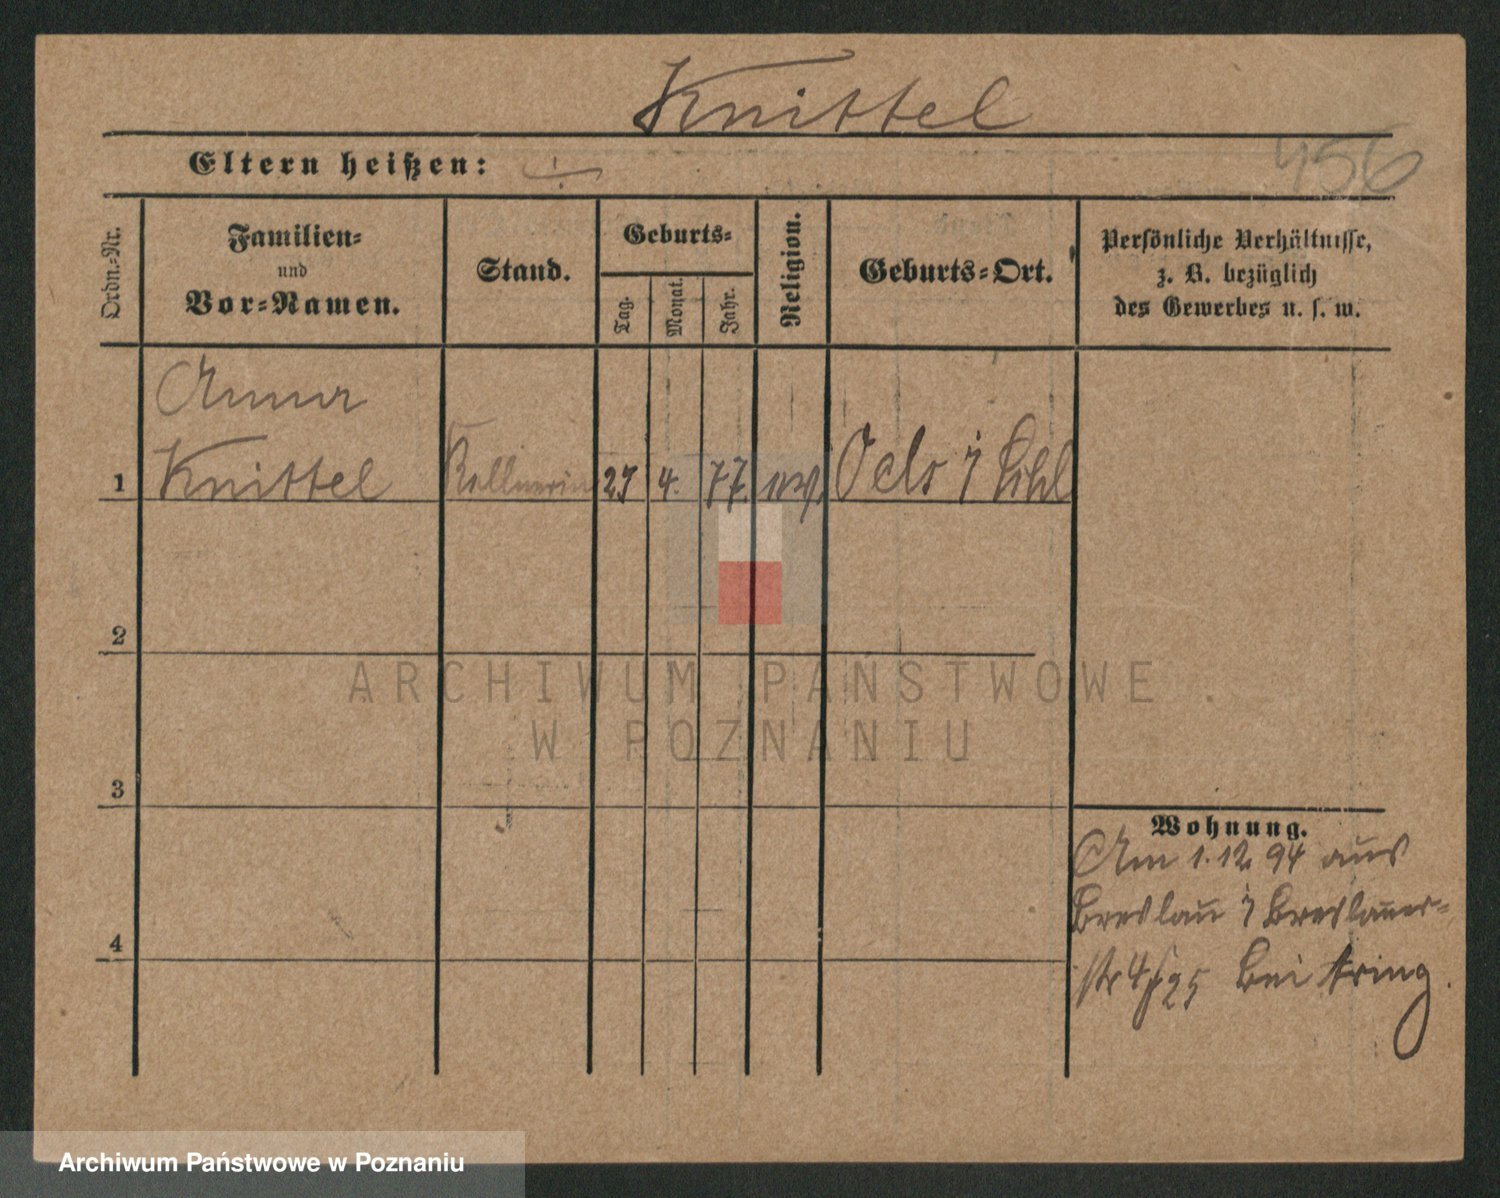 Knittel
Eltern heißen: ÷
456
Ordn.-Nr.
Familien-
und
Vor-Namen.
Stand.
Geburts-
Tag.
Monat.
Jahr.
Religion.
Geburts-Ort.
Persönliche Verhältnisse,
z. B. bezüglich
des Gewerbes u. s. w.
Anna
1 Knittel Kellnerin 27 4. 77. ev. Oels i Schl
2
ARCHIWUM PAŃSTWOWE
W POZNANIU
3
Wohnung.
Am 1.12 94 aus
Breslau i Breslauer-
str 4 25 bei
4
Archiwum Państwowe w Poznaniu